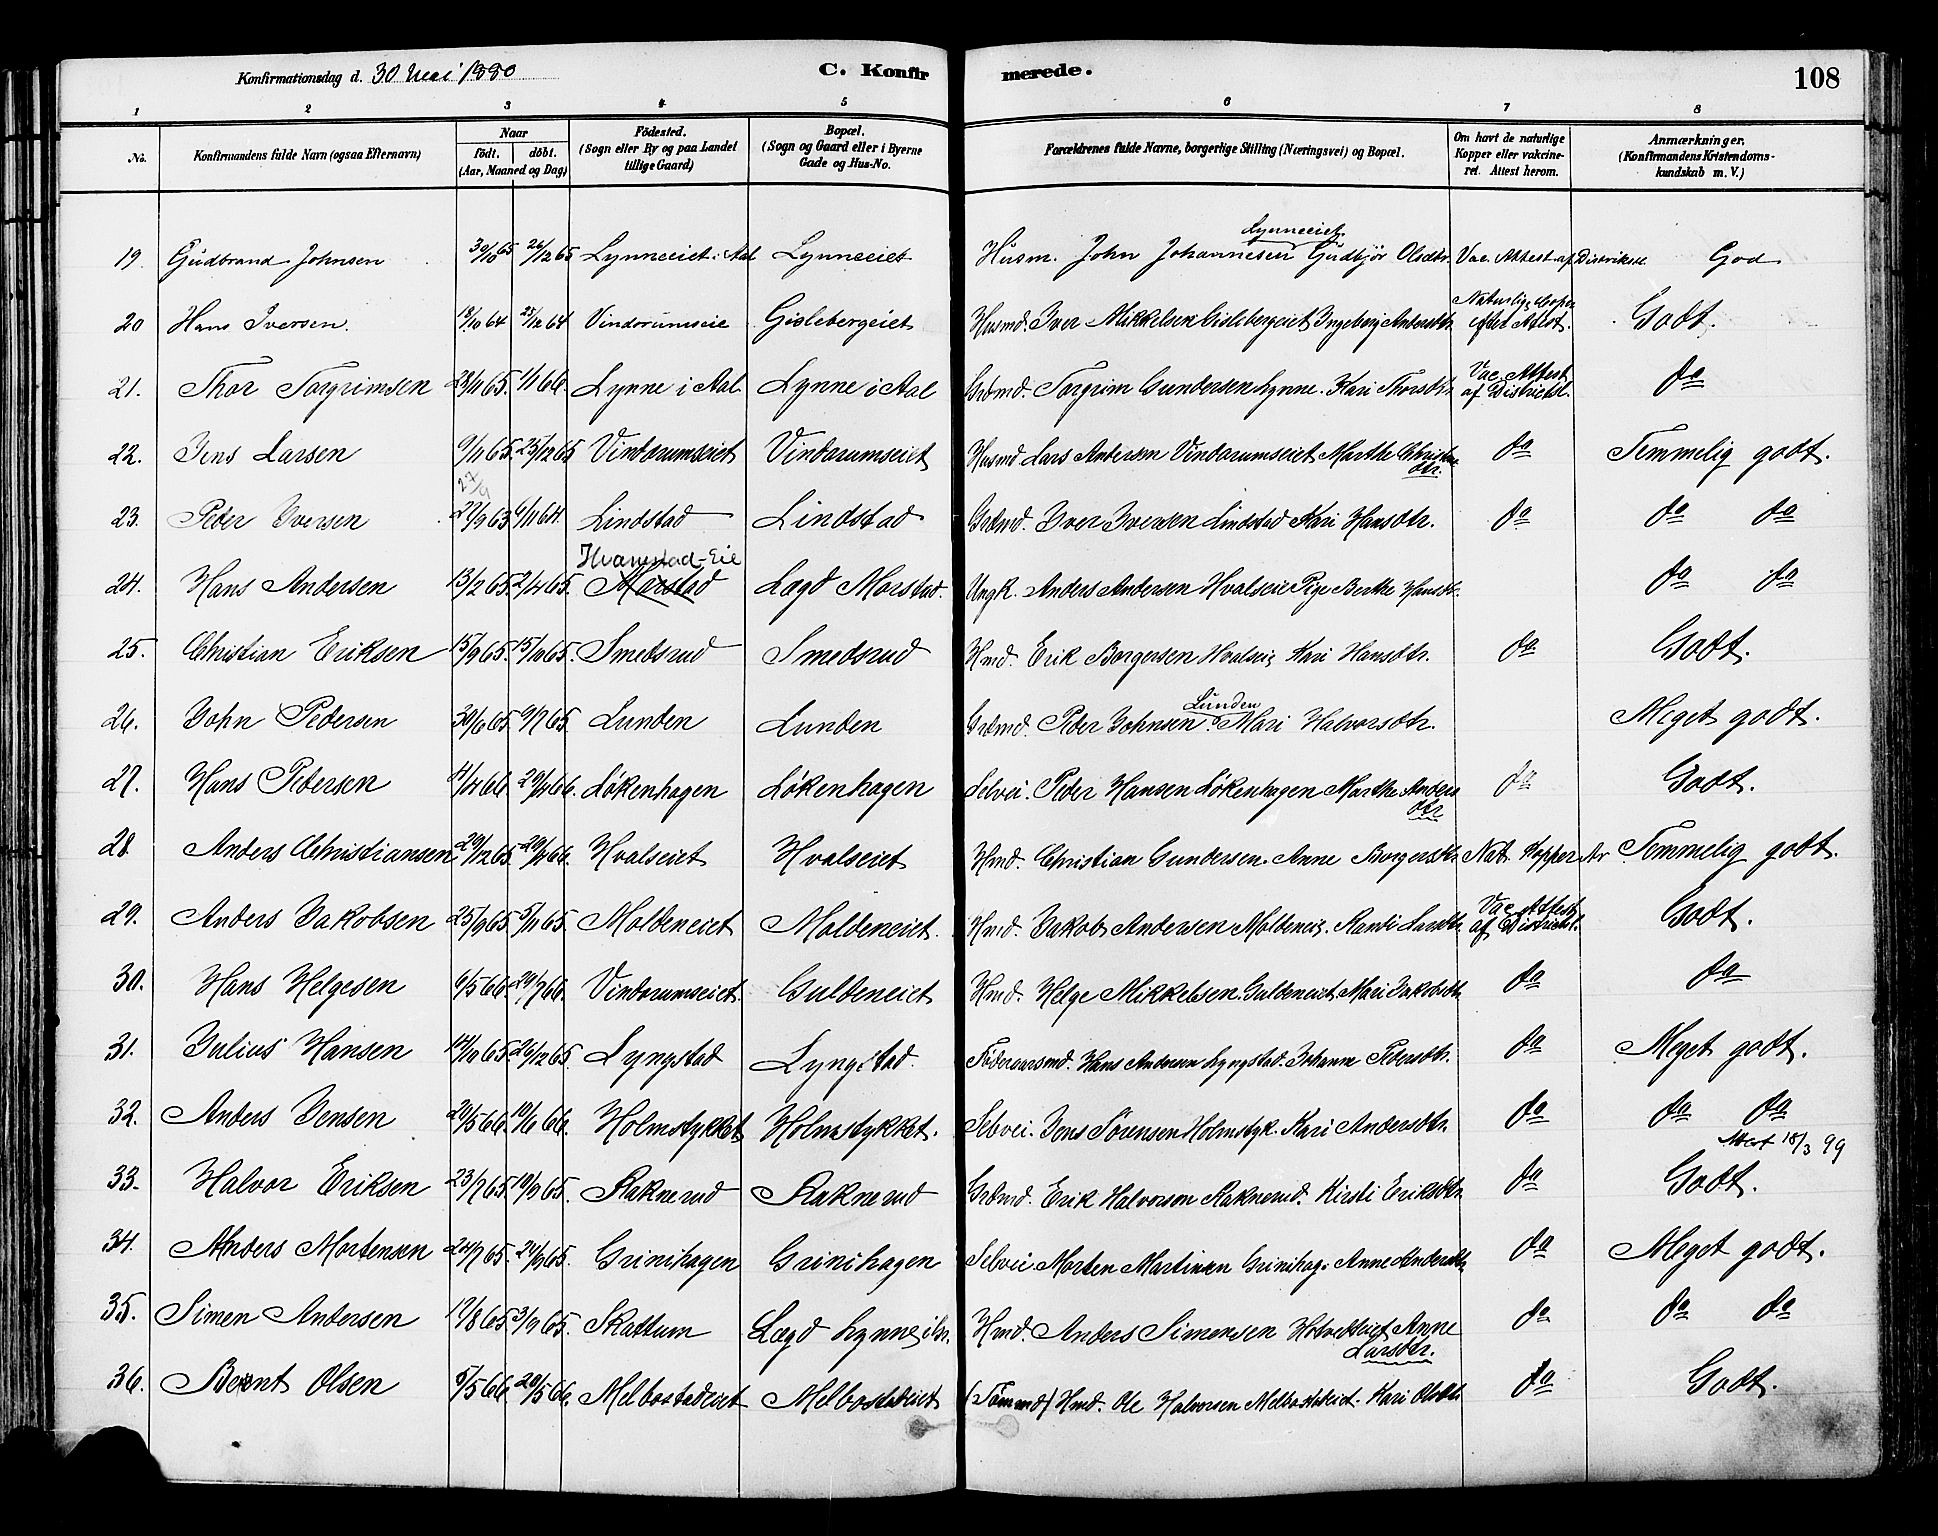 Konfirmationsdag d. 30 Mai 1880 C. Konfir merede. 108
1 2 3 4 5 6 7 8
No. Konfirmandens fulde Navn (ogsaa Efternavn) Naar födt. döbt. (Aar, Maaned og Dag) Födested. (Sogn eller By og paa Landet tillige Gaard) Bopæl. (Sogn og Gaard eller i Byerne Gade og Hus-No. Forældrenes fulde Navne, borgerlige Stilling (Næringsvei) og Bopæl. Om havt de naturlige Kopper eller vakcineret. Attest herom. Anmærkninger. (Konfirmandens Kristendomskundskab m. V.)
Lynneeiet
19. Gudbrand Johnsen 30/10 65 26/12 65 Lynneeiet i Aal Lynneeiet Husm. John Johannesen Gudbjör Olsdtr. Vac. Attest af Distriktsl. God
20 Hans Iversen. 18/10 64 25/12 64 Vindorumseie Gislebergeiet Husmd. Iver Mikkelsen Gislebergeiet Ingeborg Andersdtr. Naturlige Coper efter Atest. Godt.
21. Thor Torgrimsen 28/11 65. 1/1 66. Lynne i Aal. Lynne i Aal Grdmd. Torgrim Gundersen Lynne. Kari Thorsdtr. Vac. Attest af Districtsl. do
22. Jens Larsen 9/11 65. 25/12 65 Vindorumseiet Vindorumseiet Husmd Lars Andersen Vindorumseiet Marthe Christiansdtr. do Temmelig godt.
27/9
23. Peder Iversen 27/9 63 6/11 64. Lindstad Lindstad Grdmd. Iver Iversen Lindstad Kari Hansdtr. do do do
Hvamstad-Eie
24. Hans Andersen 13/2 65. 2/4 65. Morstad Lægd Morstad. Ungk. Anders Andersen Hvalseie Pige Berthe Hansdtr. do do
25. Christian Eriksen 15/9 65. 15/10 65. Smedsrud Smedsrud Hmd. Erik Borgersen Hvalseie Kari Hansdtr. do Godt.
Lunden
26. John Pedersen 30/6 65. 9/7 65. Lunden Lunden Grdmd. Peder Johnsen. Mari Halvorsdtr. Meget godt.
27. Hans Pedersen 4/4 66. 29/4 66. Løkenhagen Løkenhagen Selvei. Peder Hansen Løkenhagen Marthe Andersdtr. do Godt.
28. Anders Christiansen 29/12 65. 29/4 66. Hvalseiet Hvalseiet Hmd. Christian Gundersen. Anne Borgersdtr. Nat. Kopper Ar Temmelig godt.
29. Anders Jakobsen 25/9 65. 5/11 65. Moldeneiet Moldeneiet. Hmd. Jakob Andersen Moldeneie. Randi Larsdtr. Vac. Attest af Districtsl. Godt.
30. Hans Helgesen 6/5 66. 29/7 66. Vindorumseiet Guldeneiet Hmd. Helge Mikkelsen. Guldeneiet. Mari Jakobsdtr. do do
31. Julius Hansen 14/10 65. 26/12 65. Lyngstad Lyngstad. Föderaarsmd. Hans Andersen Lyngstad. Johanne Pedersdtr. do Meget godt.
32. Anders Jensen 20/5 66. 10/6 66. Holmstykket Holmstykket. Selvei. Jens Sørensen Holmstyk. Kari Andersdtr. do do do
Attest 18/3 99
33. Halvor Eriksen 23/7 65. 10/9 65. Raknerud Raknerud Grdmd. Erik Halvorsen Raknerud. Kirsti Eriksdtr. do Godt.
34. Anders Mortensen 24/7 65. 24/9 65. Grinihagen Grinihagen Selvei. Morten Martinsen Grinihag. Anne Andersdtr. do Meget godt.
35. Simen Andersen 17/8 65. 3/9 65. Skattum Lægd Lynne i Br. Hmd. Anders Simensen Anne Larsdtr. do do do
36. Bernt Olsen 5/5 66. 20/5 66. Melbostadeiet Melbostadeiet (Tömmd) Hmd. Ole Halvorsen Melbostadeiet. Kari Olsdtr. do Godt.